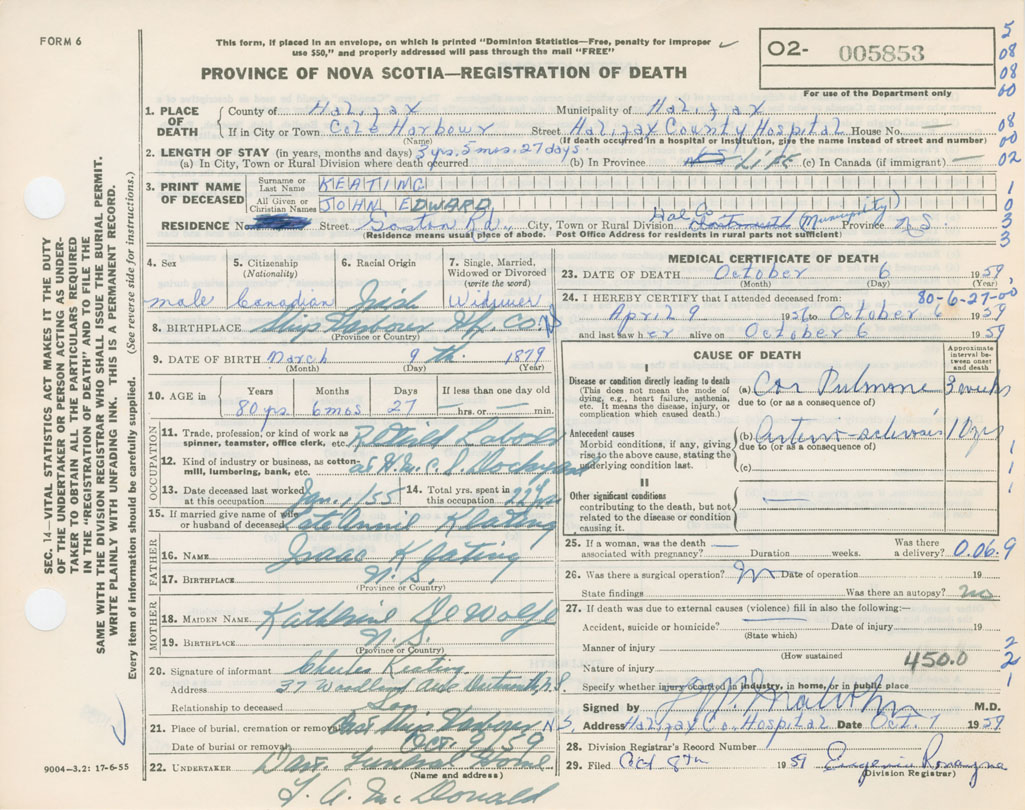 FORM 6
This form, if placed in an envelope, on which is printed "Dominion Statistics—Free, penalty for improper
use $50," and properly addressed will pass through the mail "FREE"
PROVINCE OF NOVA SCOTIA—REGISTRATION OF DEATH
O2- 005853
For use of the Department only
5
08
08
00
08
00
02
1
0
3
3
1. PLACE OF DEATH
County of Halifax Municipality of Halifax
If in City or Town Cole Harbour Street Halifax County Hospital House No. —
(Name) (If death occurred in a hospital or institution, give the name instead of street and number)
2. LENGTH OF STAY (in years, months and days) 3 yrs. 5 mos. 27 days.
(a) In City, Town or Rural Division where death occurred (b) In Province LIFE (c) In Canada (if immigrant) —
3. PRINT NAME OF DECEASED
Surname or Last Name KEATING
All Given or Christian Names JOHN EDWARD
RESIDENCE No. Street Gaston Rd., City, Town or Rural Division Hal. Co. Dartmouth (Municipality) Province N.S.
(Residence means usual place of abode. Post Office Address for residents in rural parts not sufficient)
4. Sex
male
5. Citizenship
(Nationality)
Canadian
6. Racial Origin
Irish
7. Single, Married, Widowed or Divorced
(write the word)
Widower
8. BIRTHPLACE Ships Harbour Hfx. Co. N.S
(Province or Country)
9. DATE OF BIRTH March 9 th. 1879
(Month) (Day) (Year)
10. AGE in
Years Months Days If less than one day old
80 yrs 6 mos 27 — hrs. or — min.
OCCUPATION
11. Trade, profession, or kind of work as spinner, teamster, office clerk, etc. Retired Laborer
12. Kind of industry or business, as cotton-mill, lumbering, bank, etc. at H.M.C.S Dockyard
13. Date deceased last worked at this occupation Jan. 1/55
14. Total yrs. spent in this occupation 22 yrs
15. If married give name of wife or husband of deceased Late Annie Keating
FATHER
16. NAME Isaac Keating
17. BIRTHPLACE N.S.
(Province or Country)
MOTHER
18. MAIDEN NAME Katherine DeWolfe
19. BIRTHPLACE N.S.
(Province or Country)
20. Signature of informant Charles Keating
Address 37 Woodland Ave Dartmouth N.S
Relationship to deceased Son
21. Place of burial, cremation or removal East Ships Harbour, N.S.
Date of burial or removal Oct. 9/59
22. UNDERTAKER Dart. Funeral Home
(Name and address)
T. A. McDonald
MEDICAL CERTIFICATE OF DEATH
23. DATE OF DEATH October 6 1959
(Month) (Day)
80-6-27-00
24. I HEREBY CERTIFY that I attended deceased from:
April 9 1956 to October 6 1959
and last saw her alive on October 6 1959
CAUSE OF DEATH
Approximate interval between onset and death
I
Disease or condition directly leading to death
(This does not mean the mode of dying, e.g., heart failure, asthenia, etc. It means the disease, injury, or complication which caused death.)
(a) Cor Pulmone 3 weeks
due to (or as a consequence of)
Antecedent causes
Morbid conditions, if any, giving rise to the above cause, stating the underlying condition last.
(b) Arterio-sclerosis 10 yrs
due to (or as a consequence of)
(c)
1
1
1
II
Other significant conditions
contributing to the death, but not related to the disease or condition causing it.
—
25. If a woman, was the death associated with pregnancy? — Duration weeks. Was there a delivery? 0.06.9
26. Was there a surgical operation? No Date of operation 19
State findings Was there an autopsy? no
27. If death was due to external causes (violence) fill in also the following:—
Accident, suicide or homicide? — Date of injury 19
(State which)
Manner of injury
(How sustained)
Nature of injury 450.0
2
2
1
Specify whether injury occurred in industry, in home, or in public place
Signed by M.D.
Address Halifax Co. Hospital Date Oct. 7 1959
28. Division Registrar's Record Number
29. Filed Oct 8th 1959 Eugenie
(Division Registrar)
9004—3.2: 17-6-55
SEC. 14—VITAL STATISTICS ACT MAKES IT THE DUTY
OF THE UNDERTAKER OR PERSON ACTING AS UNDER-
TAKER TO OBTAIN ALL THE PARTICULARS REQUIRED
IN THE "REGISTRATION OF DEATH" AND TO FILE THE
SAME WITH THE DIVISION REGISTRAR WHO SHALL ISSUE THE BURIAL PERMIT.
WRITE PLAINLY WITH UNFADING INK. THIS IS A PERMANENT RECORD.
Every item of information should be carefully supplied. (See reverse side for instructions.)